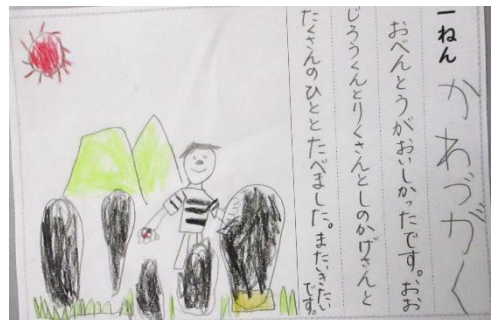 一ねん かわづがく
おべんとうがおいしかったです。おお
じろうくんとりくさんとしのかげさんと
たくさんのひととたべました。またいきたい
です。